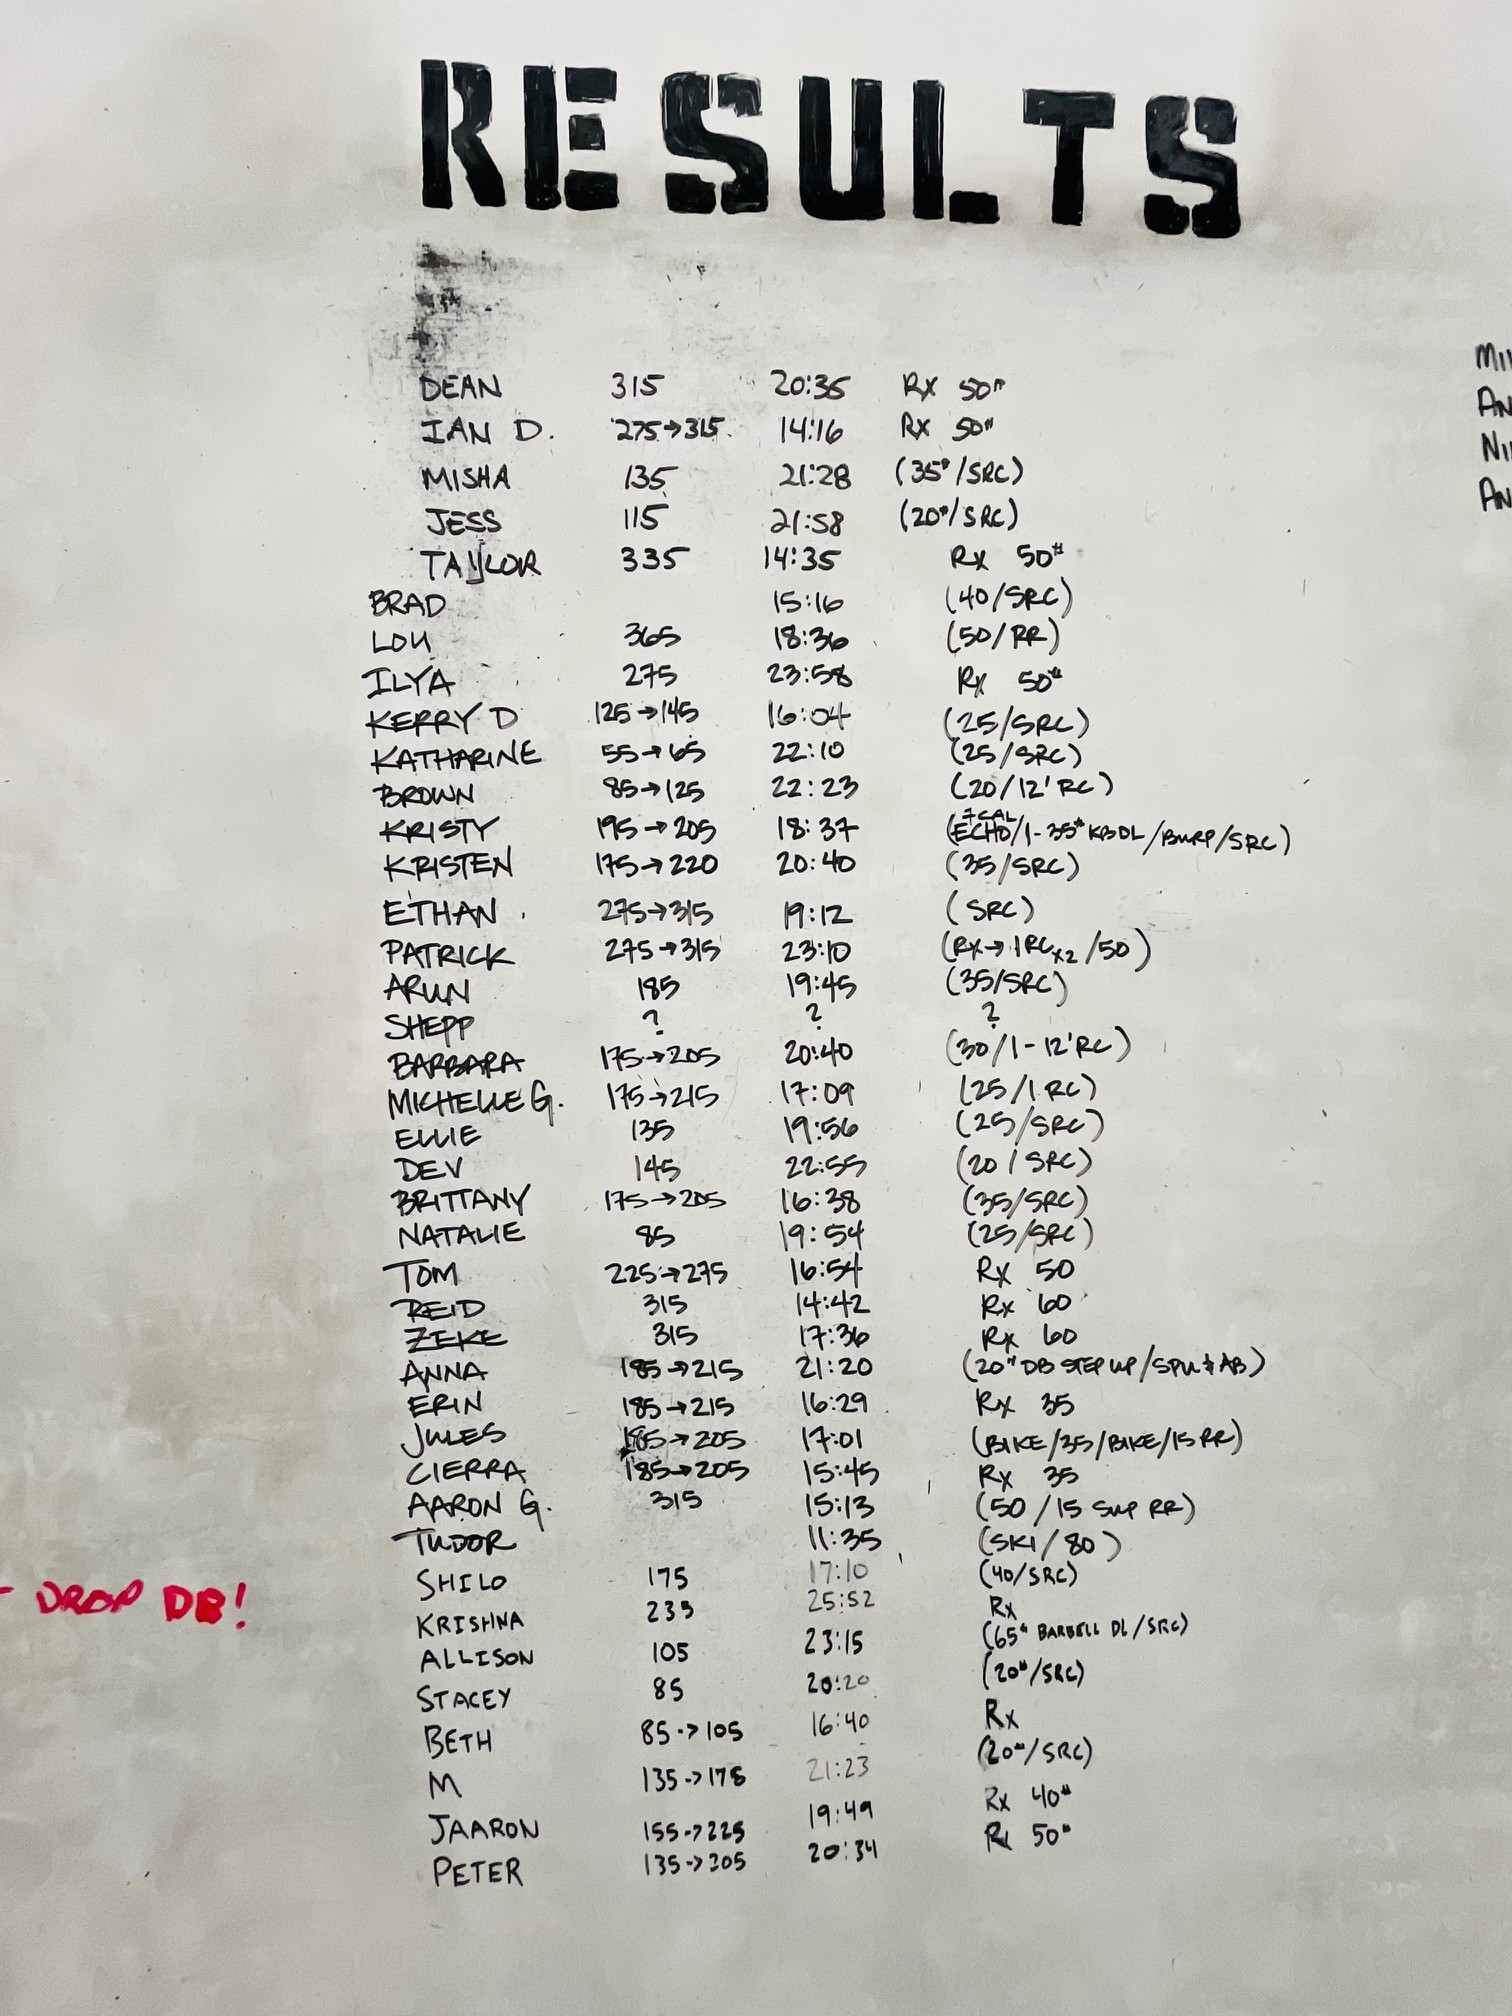 RESULTS
DEAN 315 20:35 Rx 50#
IAN D. 275→315 14:16 Rx 50#
MISHA 135 21:28 (35#/SRC)
JESS 115 21:58 (20#/SRC)
TAYLOR 335 14:35 Rx 50#
BRAD 15:16 (40/SRC)
LOU 365 18:36 (50/RR)
ILYA 275 23:58 Rx 50#
KERRY D 125→145 16:04 (25/SRC)
KATHARINE 55→65 22:10 (25/SRC)
BROWN 85→125 22:23 (20/12' RC)
KRISTY 195→205 18:37 (7CAL ECHO/1-35# KBDL/BURP/SRC)
KRISTEN 175→220 20:40 (35/SRC)
ETHAN 275→315 19:12 (SRC)
PATRICK 275→315 23:10 (RX→1RCx2/50)
ARUN 185 19:45 (35/SRC)
SHEPP ? ? ?
BARBARA 175→205 20:40 (30/1-12'RC)
MICHELLE G. 175→215 17:09 (25/1 RC)
ELLIE 135 19:56 (25/SRC)
DEV 145 22:55 (20/SRC)
BRITTANY 175→205 16:38 (35/SRC)
NATALIE 85 19:54 (25/SRC)
TOM 225→275 16:54 Rx 50
REID 315 14:42 Rx 60
ZEKE 315 17:36 Rx 60
ANNA 185→215 21:20 (20" DB STEP UP/SPU & AB)
ERIN 185→215 16:29 Rx 35
JULES 185→205 17:01 (BIKE/35/BIKE/15 RR)
CIERRA 185→205 15:45 Rx 35
AARON G. 315 15:13 (50/15 SUP RR)
TUDOR 11:35 (SKI/80)
SHILO 175 17:10 (40/SRC)
KRISHNA 235 25:52 Rx
ALLISON 105 23:15 (65# BARBELL DL/SRC)
STACEY 85 20:20 (20#/SRC)
BETH 85->105 16:40 Rx
M 135->175 21:23 (20#/SRC)
JAARON 155->225 19:49 Rx 40#
PETER 135->205 20:34 Rx 50#
DROP DB!